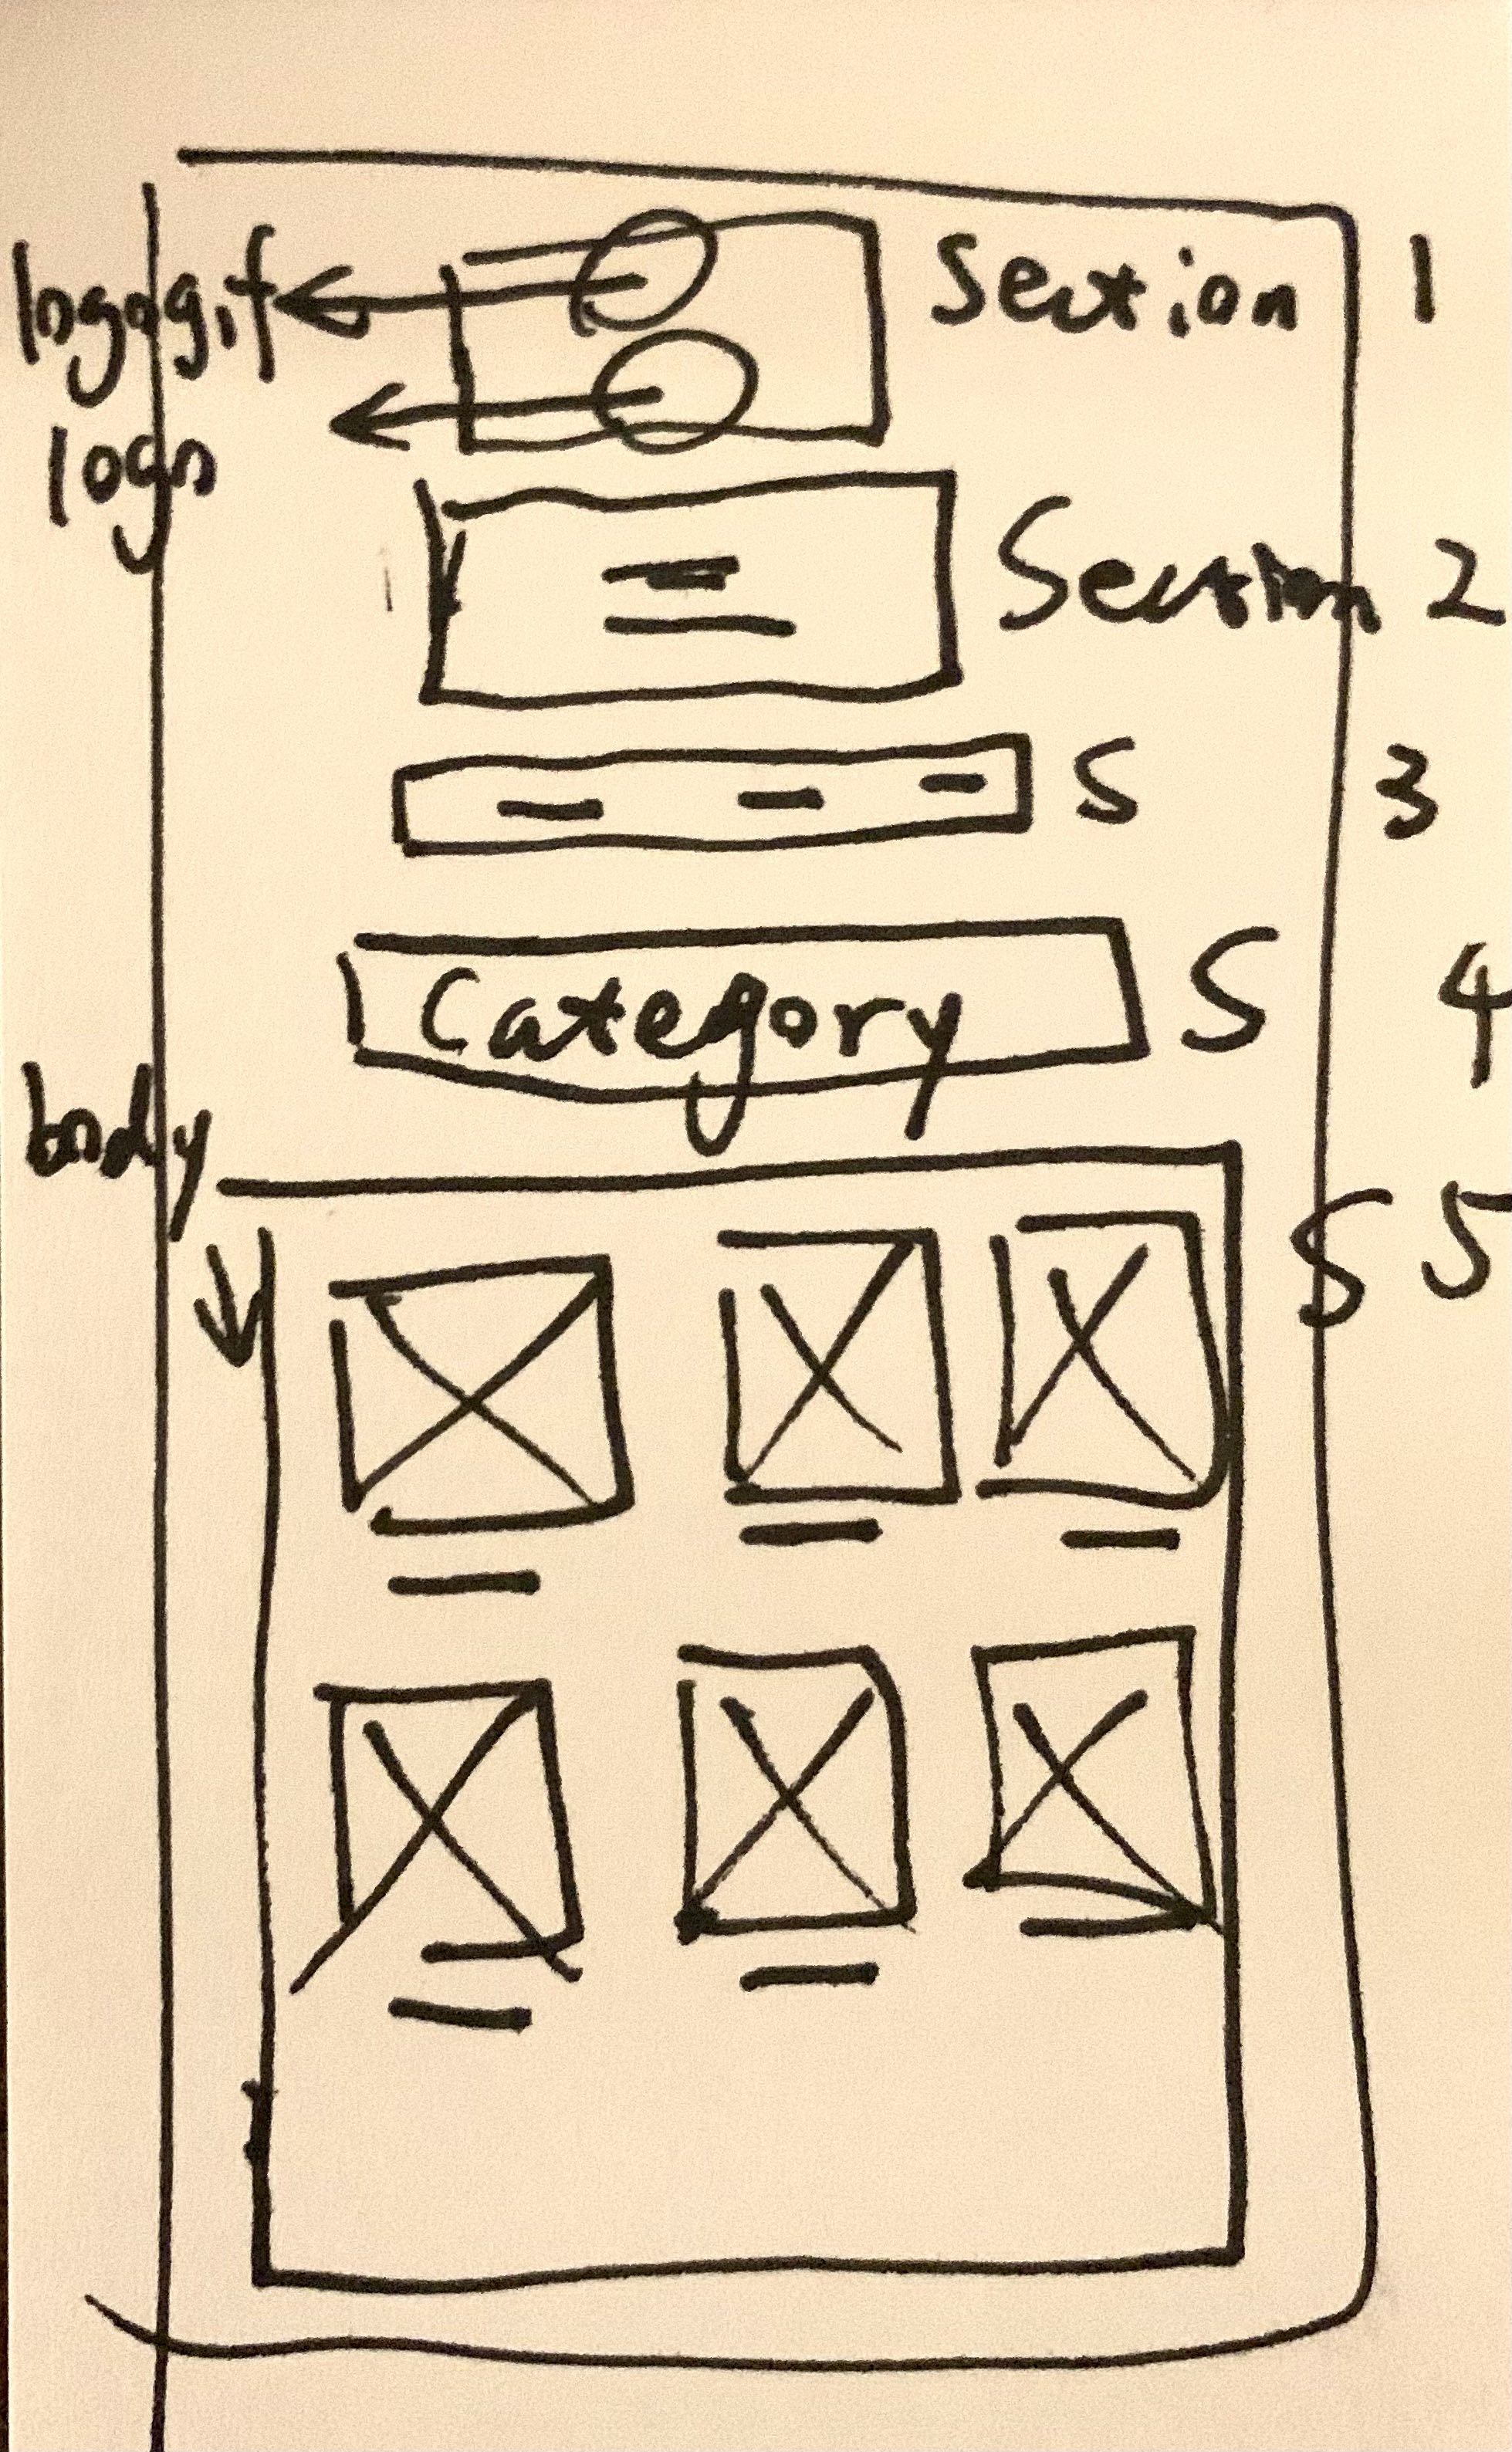 logogif Section 1
logo
Section 2
S 3
Category S 4
body
S 5